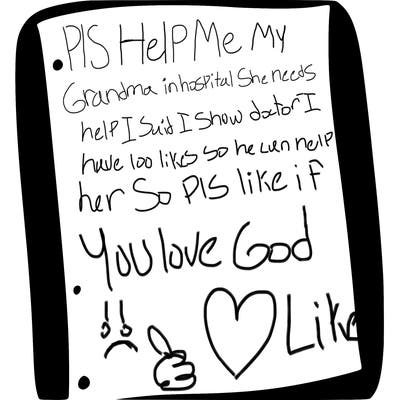 PlS HelP Me My
Grandma in hospital She needs
help I Said I Show doctor I
have 100 likes so he can help
her So Pls like if
You love God
Like